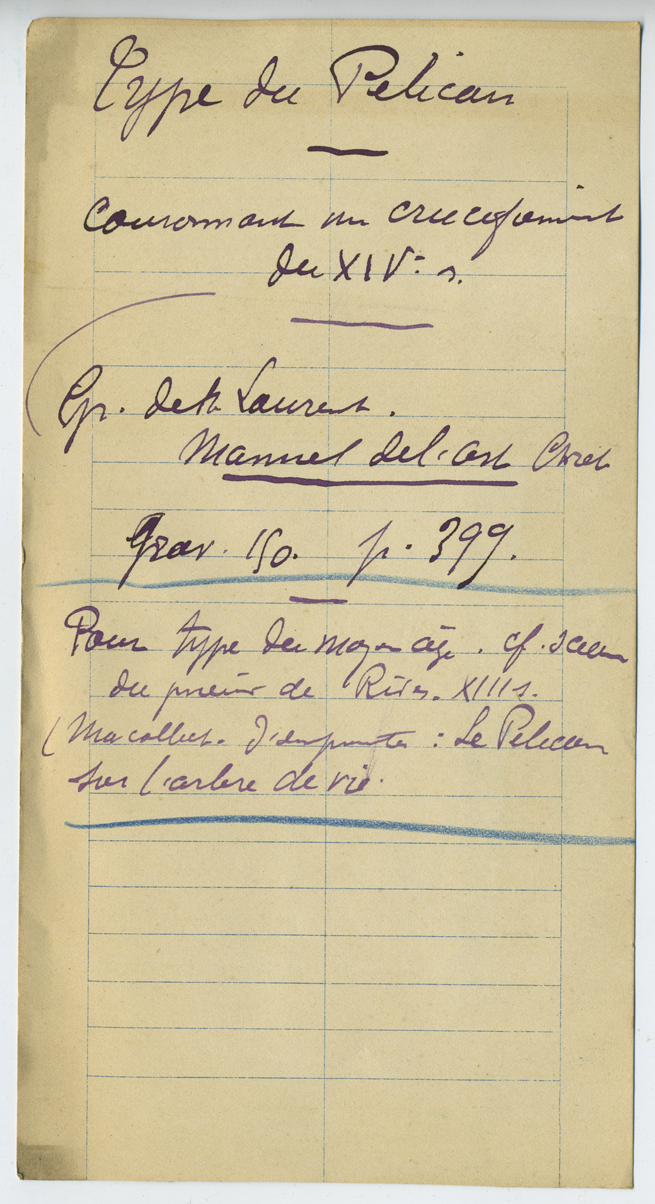 Type du Pelican
couronnant un crucifiement
du XIVe s.
Gr. de St Laurent.
Manuel de l'art Chret
Grav. 150. p. 399.
Pour type du moyen âge. cf. sceau
du prieur de Rives. XIII s.
(Ma collect. d'empreintes : Le Pelican
sur l'arbre de vie.